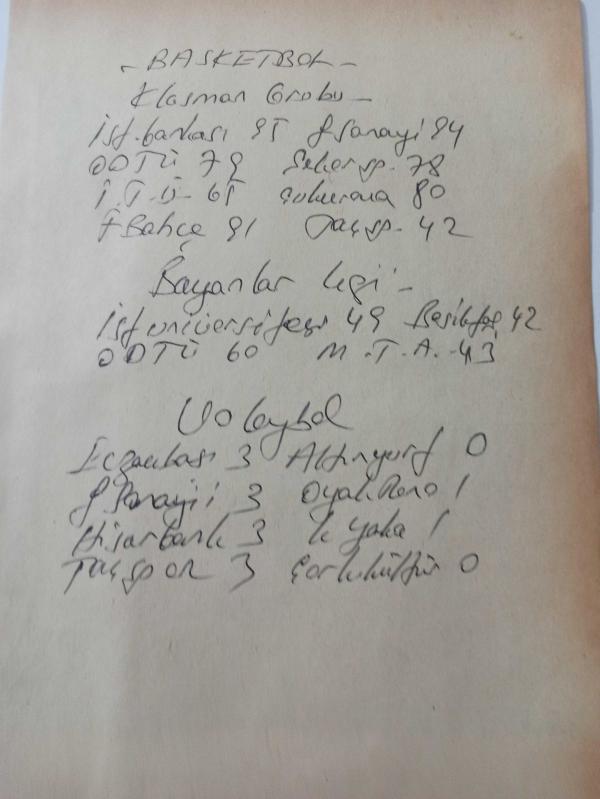 - BASKETBOL -
Klasman Grubu -
İst. bankası 95 f Sanayi 84
ODTÜ 79 Şekersp. 78
İ.T.Ü - 65 Çukurova 80
F Bahçe 91 Taçsp. 42
Bayanlar ligi -
İst üniversitesi 49 Beşiktaş 42
ODTÜ 60 M.T.A. 43
Voleybol
Eczacıbası 3 Altınyurt 0
f Sanayii 3 Oyak Reno 1
Hisarbank 3 k yaka 1
Taçspor 3 Çorlukültür 0